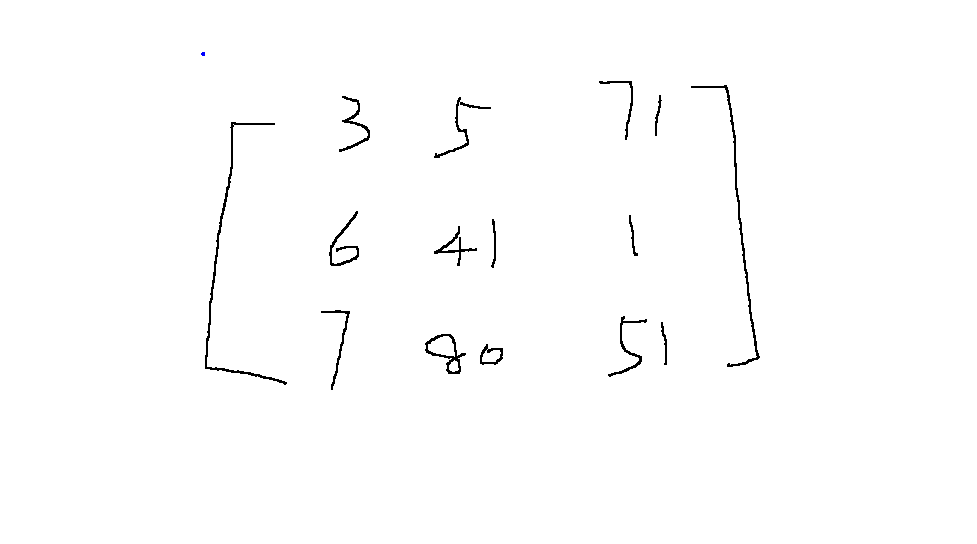 3 5 71
6 41 1
7 80 51